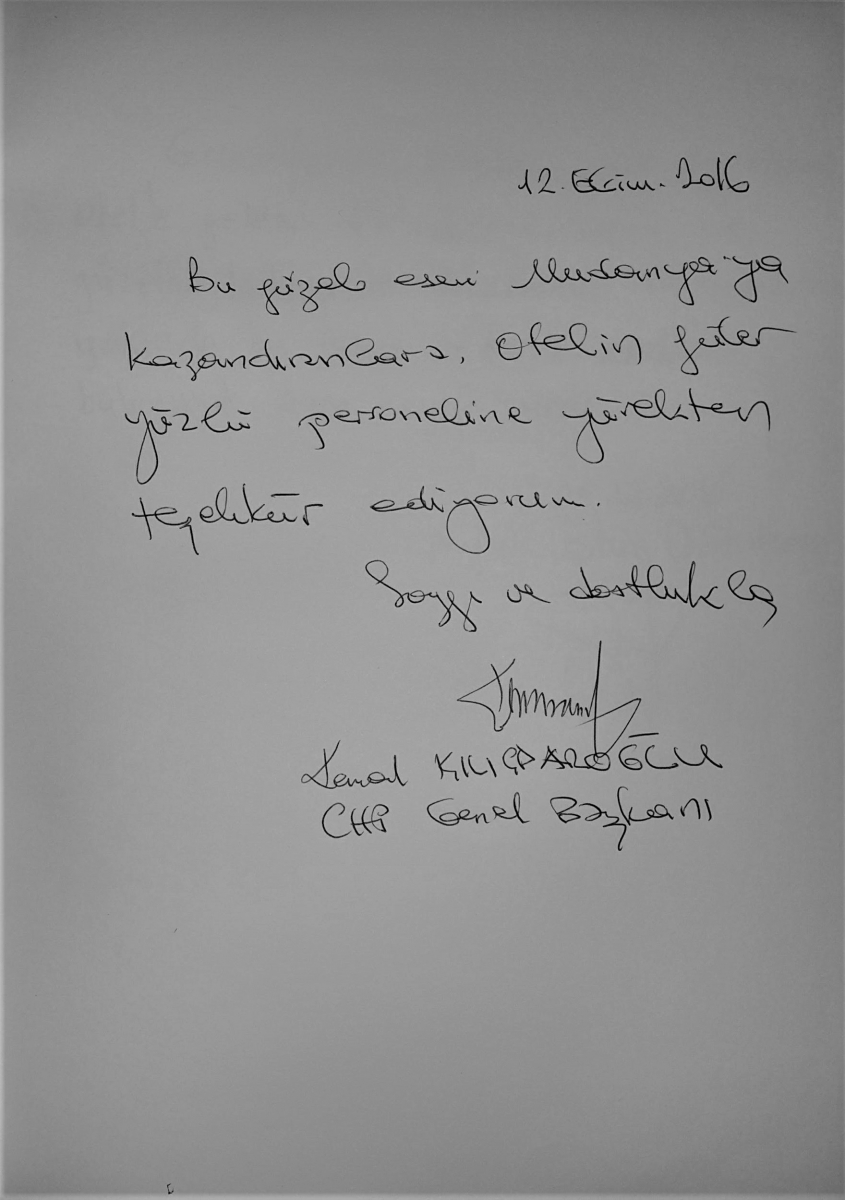 12. Ekim. 2016
Bu güzel eseri Mudanya'ya
kazandıranlara, otelin güler
yüzlü personeline yürekten
teşekkür ediyorum.
Saygı ve dostlukla
Kemal KILIÇDAROĞLU
CHP Genel Başkanı